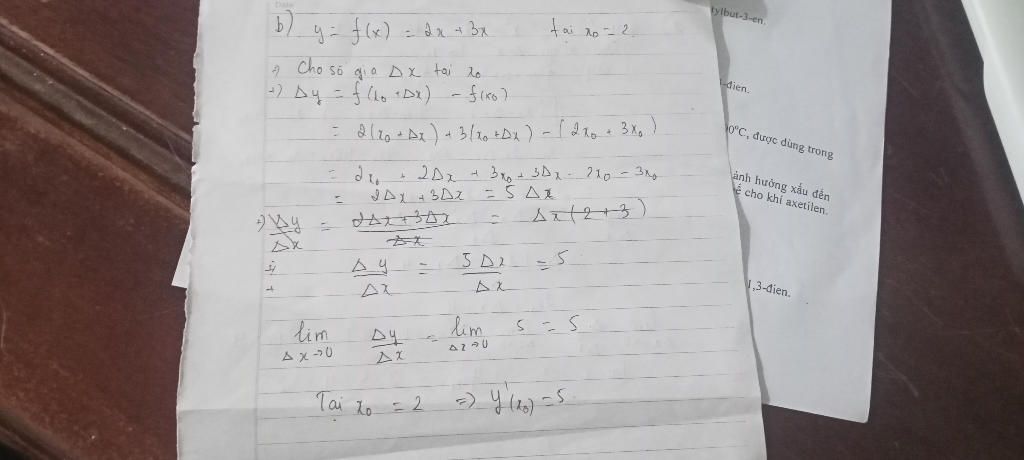 Date
b) y = f(x) = 2x + 3x tại x₀ = 2
Cho số gia Δx tại x₀
+) Δy = f(x₀ + Δx) - f(x₀)
= 2(x₀ + Δx) + 3(x₀ + Δx) - (2x₀ + 3x₀)
= 2x₀ + 2Δx + 3x₀ + 3Δx - 2x₀ - 3x₀
= 2Δx + 3Δx = 5Δx
+) Δy/Δx = 2Δx + 3Δx/Δx = Δx(2 + 3)
Δy/Δx = 5Δx/Δx = 5
lim Δx→0 Δy/Δx = lim Δx→0 5 = 5
Tại x₀ = 2 => y'(x₀) = 5
tylbut-3-en.
-đien.
0°C, được dùng trong
ảnh hưởng xấu đến
ế cho khí axetilen.
1,3-đien.